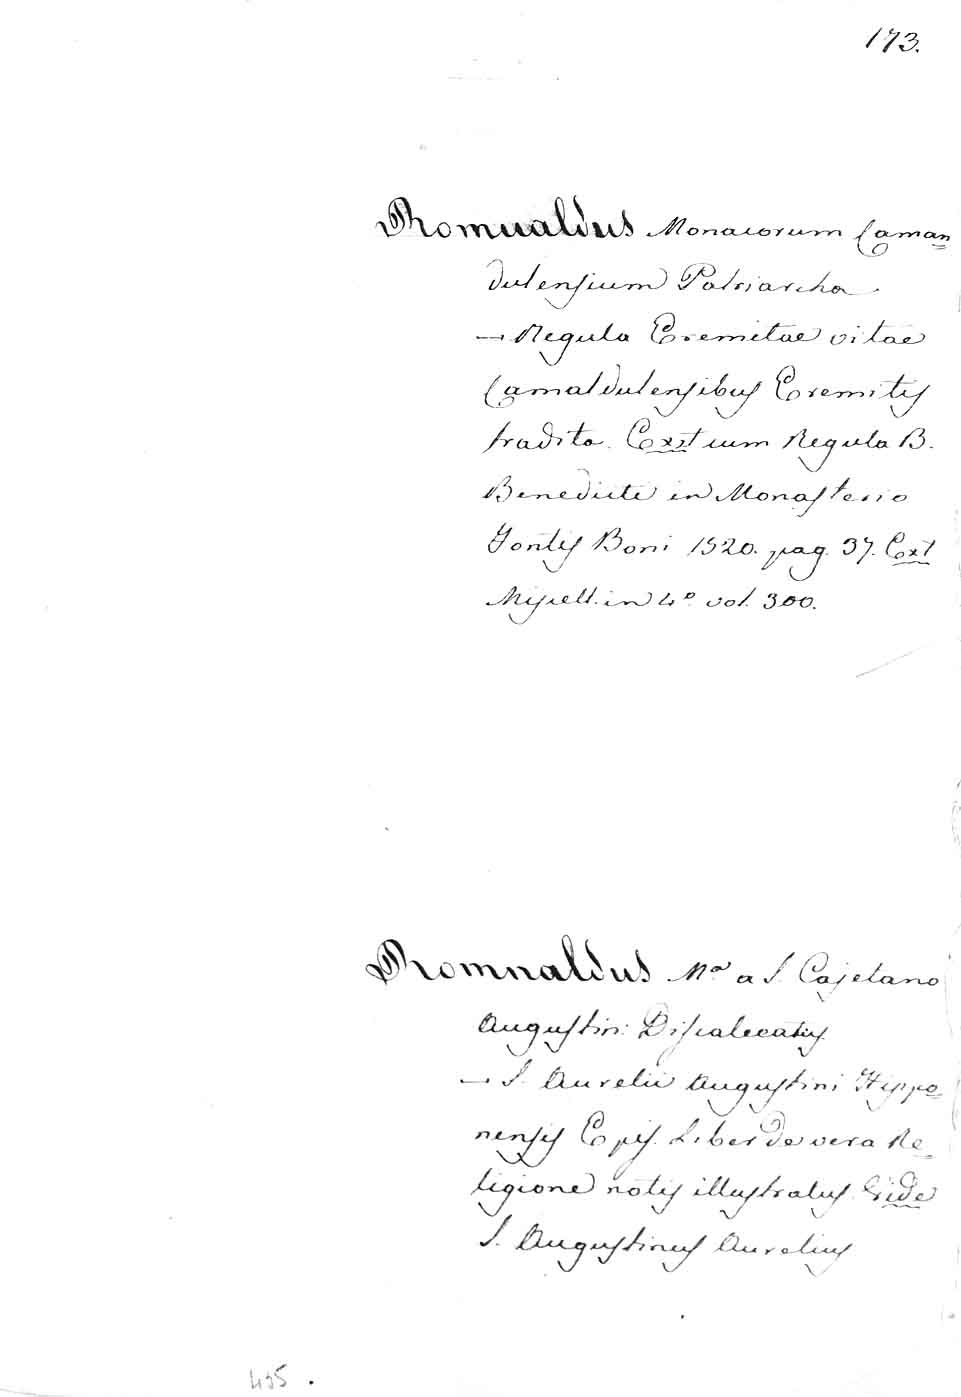 173.
Romualdus Monacorum Caman=
dulensium Patriarcha
— Regula Eremitae vitae
Camaldulensibus Eremitis
tradita. Ext cum Regula B.
Benedicti in Monasterio
Fontis Boni 1520. pag. 37. Ext
Miscell. in 4º vol. 300.
Romualdus Mª a S. Cajetano
Augustin: Discalceatus
— S. Aurelii Augustini Hippo=
nensis Epis. Liber de vera Re=
ligione notis illustratus Vide
S. Augustinus Aurelius
435